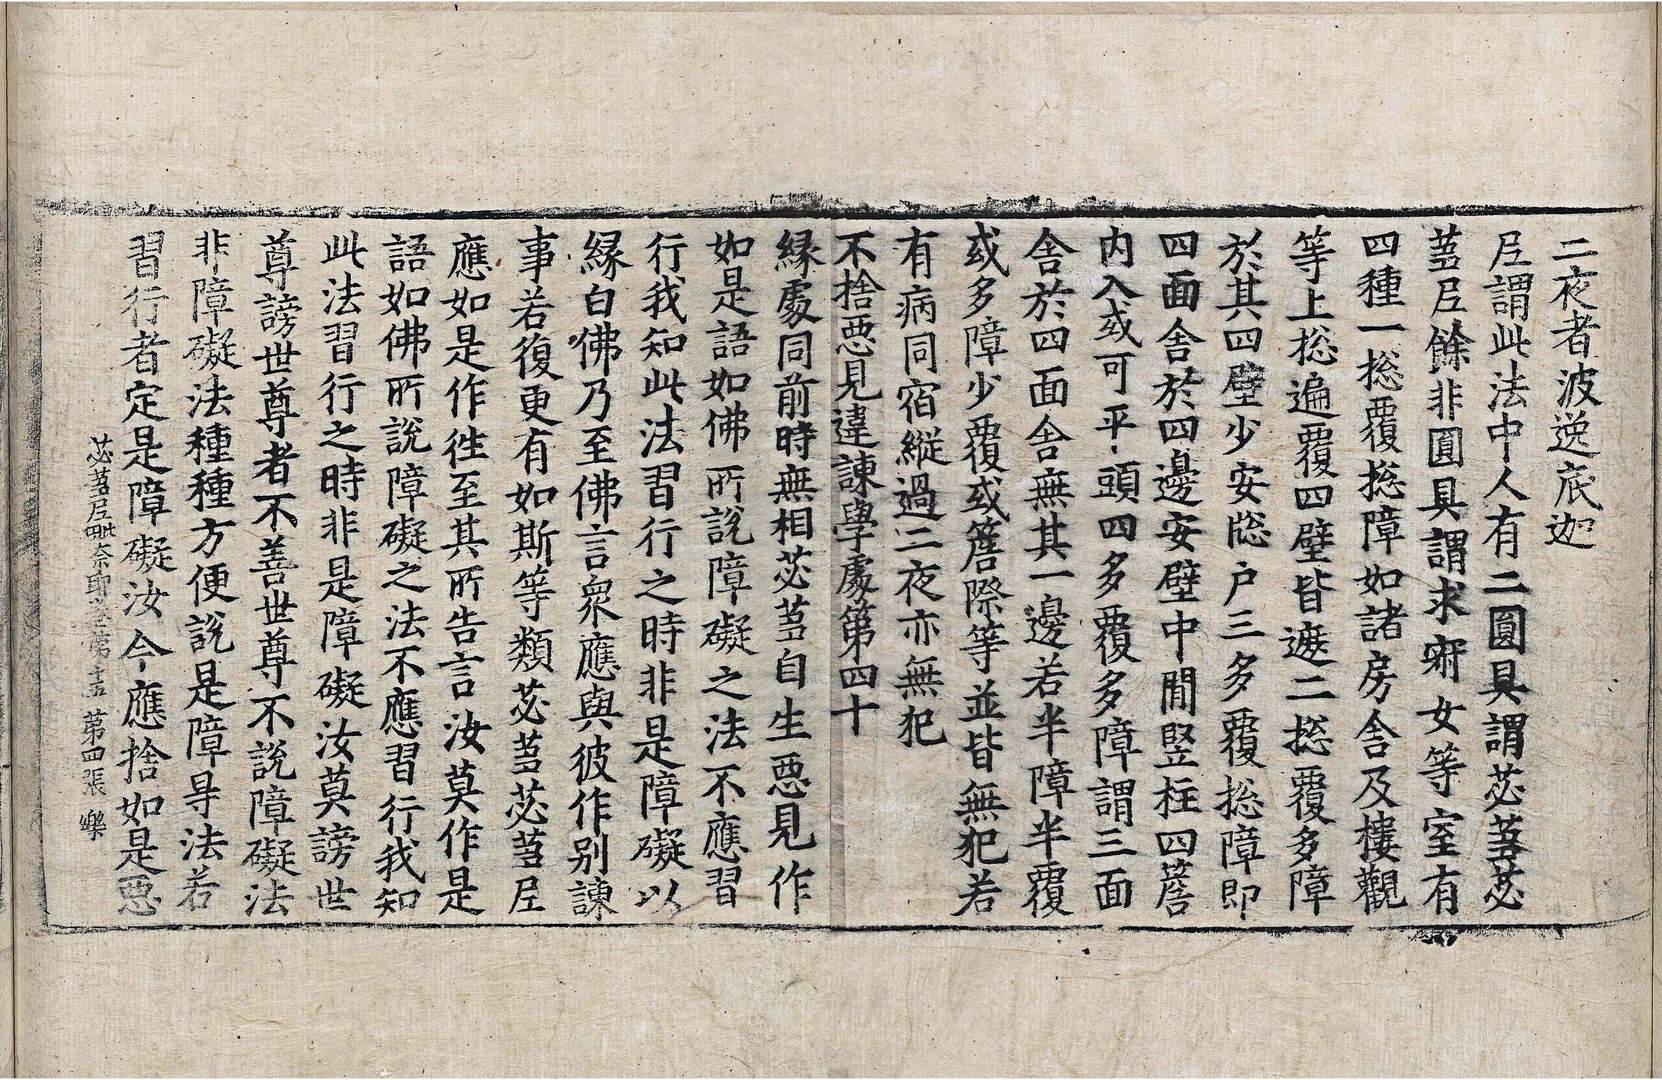 二夜者波逸底迦
尼謂此法中人有二圓具謂苾蒭苾
蒭尼餘非圓具謂求寂女等室有
四種一揔覆揔障如諸房舍及樓觀
等上揔遍覆四壁皆遮二揔覆多障
於其四壁少安牎户三多覆揔障即
四面舍於四邊安壁中間竪柱四簷
内入或可平頭四多覆多障謂三面
舍於四面舍無其一邊若半障半覆
或多障少覆或簷際等並皆無犯若
有病同宿縱過二夜亦無犯
不捨惡見違諫學處第四十
縁處同前時無相苾蒭自生惡見作
如是語如佛所說障礙之法不應習
行我知此法習行之時非是障礙以
縁白佛乃至佛言衆應與彼作别諫
事若復更有如斯等類苾蒭苾蒭尼
應如是作徃至其所告言汝莫作是
語如佛所說障礙之法不應習行我知
此法習行之時非是障礙汝莫謗世
尊謗世尊者不善世尊不說障礙法
非障礙法種種方便說是障㝵法若
習行者定是障礙汝今應捨如是惡
苾蒭尼毗奈耶卷第十五 第四張 樂